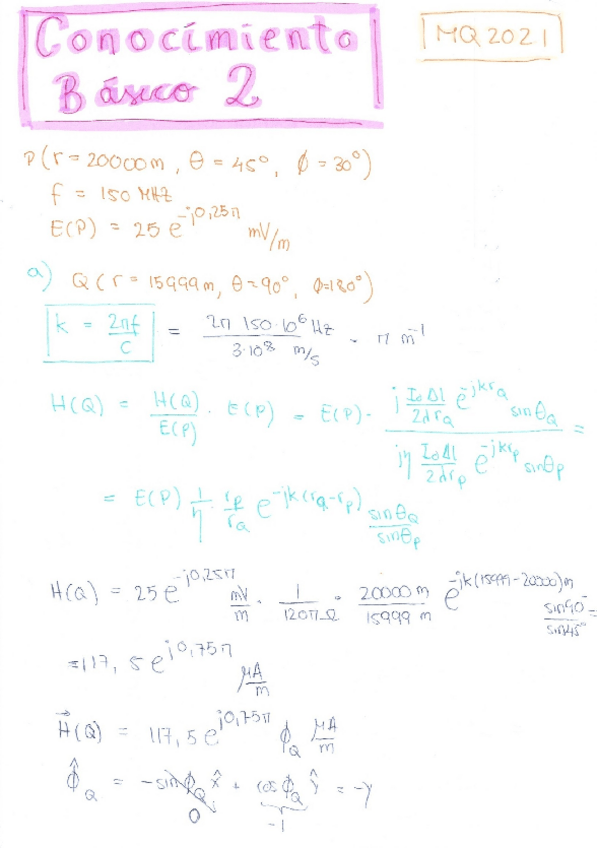 Conocimiento
Básico 2
MQ2021
P(r = 20000m, θ = 45°, ϕ = 30°)
f = 150 MHz
E(P) = 25 e^{-j0,25π} mV/m
a) Q(r = 15999m, θ = 90°, ϕ = 180°)
k = 2πf/c = 2π 150·10^6 Hz / 3·10^8 m/s = π m^{-1}
H(Q) = H(Q)/E(P) · E(P) = E(P) · (j I₀Δl/2λr_Q e^{-jkr_Q} sinθ_Q) / (jη I₀Δl/2λr_P e^{-jkr_P} sinθ_P) =
= E(P) 1/η · r_P/r_Q e^{-jk(r_Q-r_P)} sinθ_Q/sinθ_P
H(Q) = 25 e^{-j0,25π} mV/m · 1/120πΩ · 20000 m/15999 m e^{-jk(15999-20000)m} sin90°/sin45° =
= 117,5 e^{j0,75π} μA/m
H⃗(Q) = 117,5 e^{j0,75π} ϕ_Q μA/m
ϕ̂_Q = -sinϕ_Q x̂ + cosϕ_Q ŷ = -y
0
-1